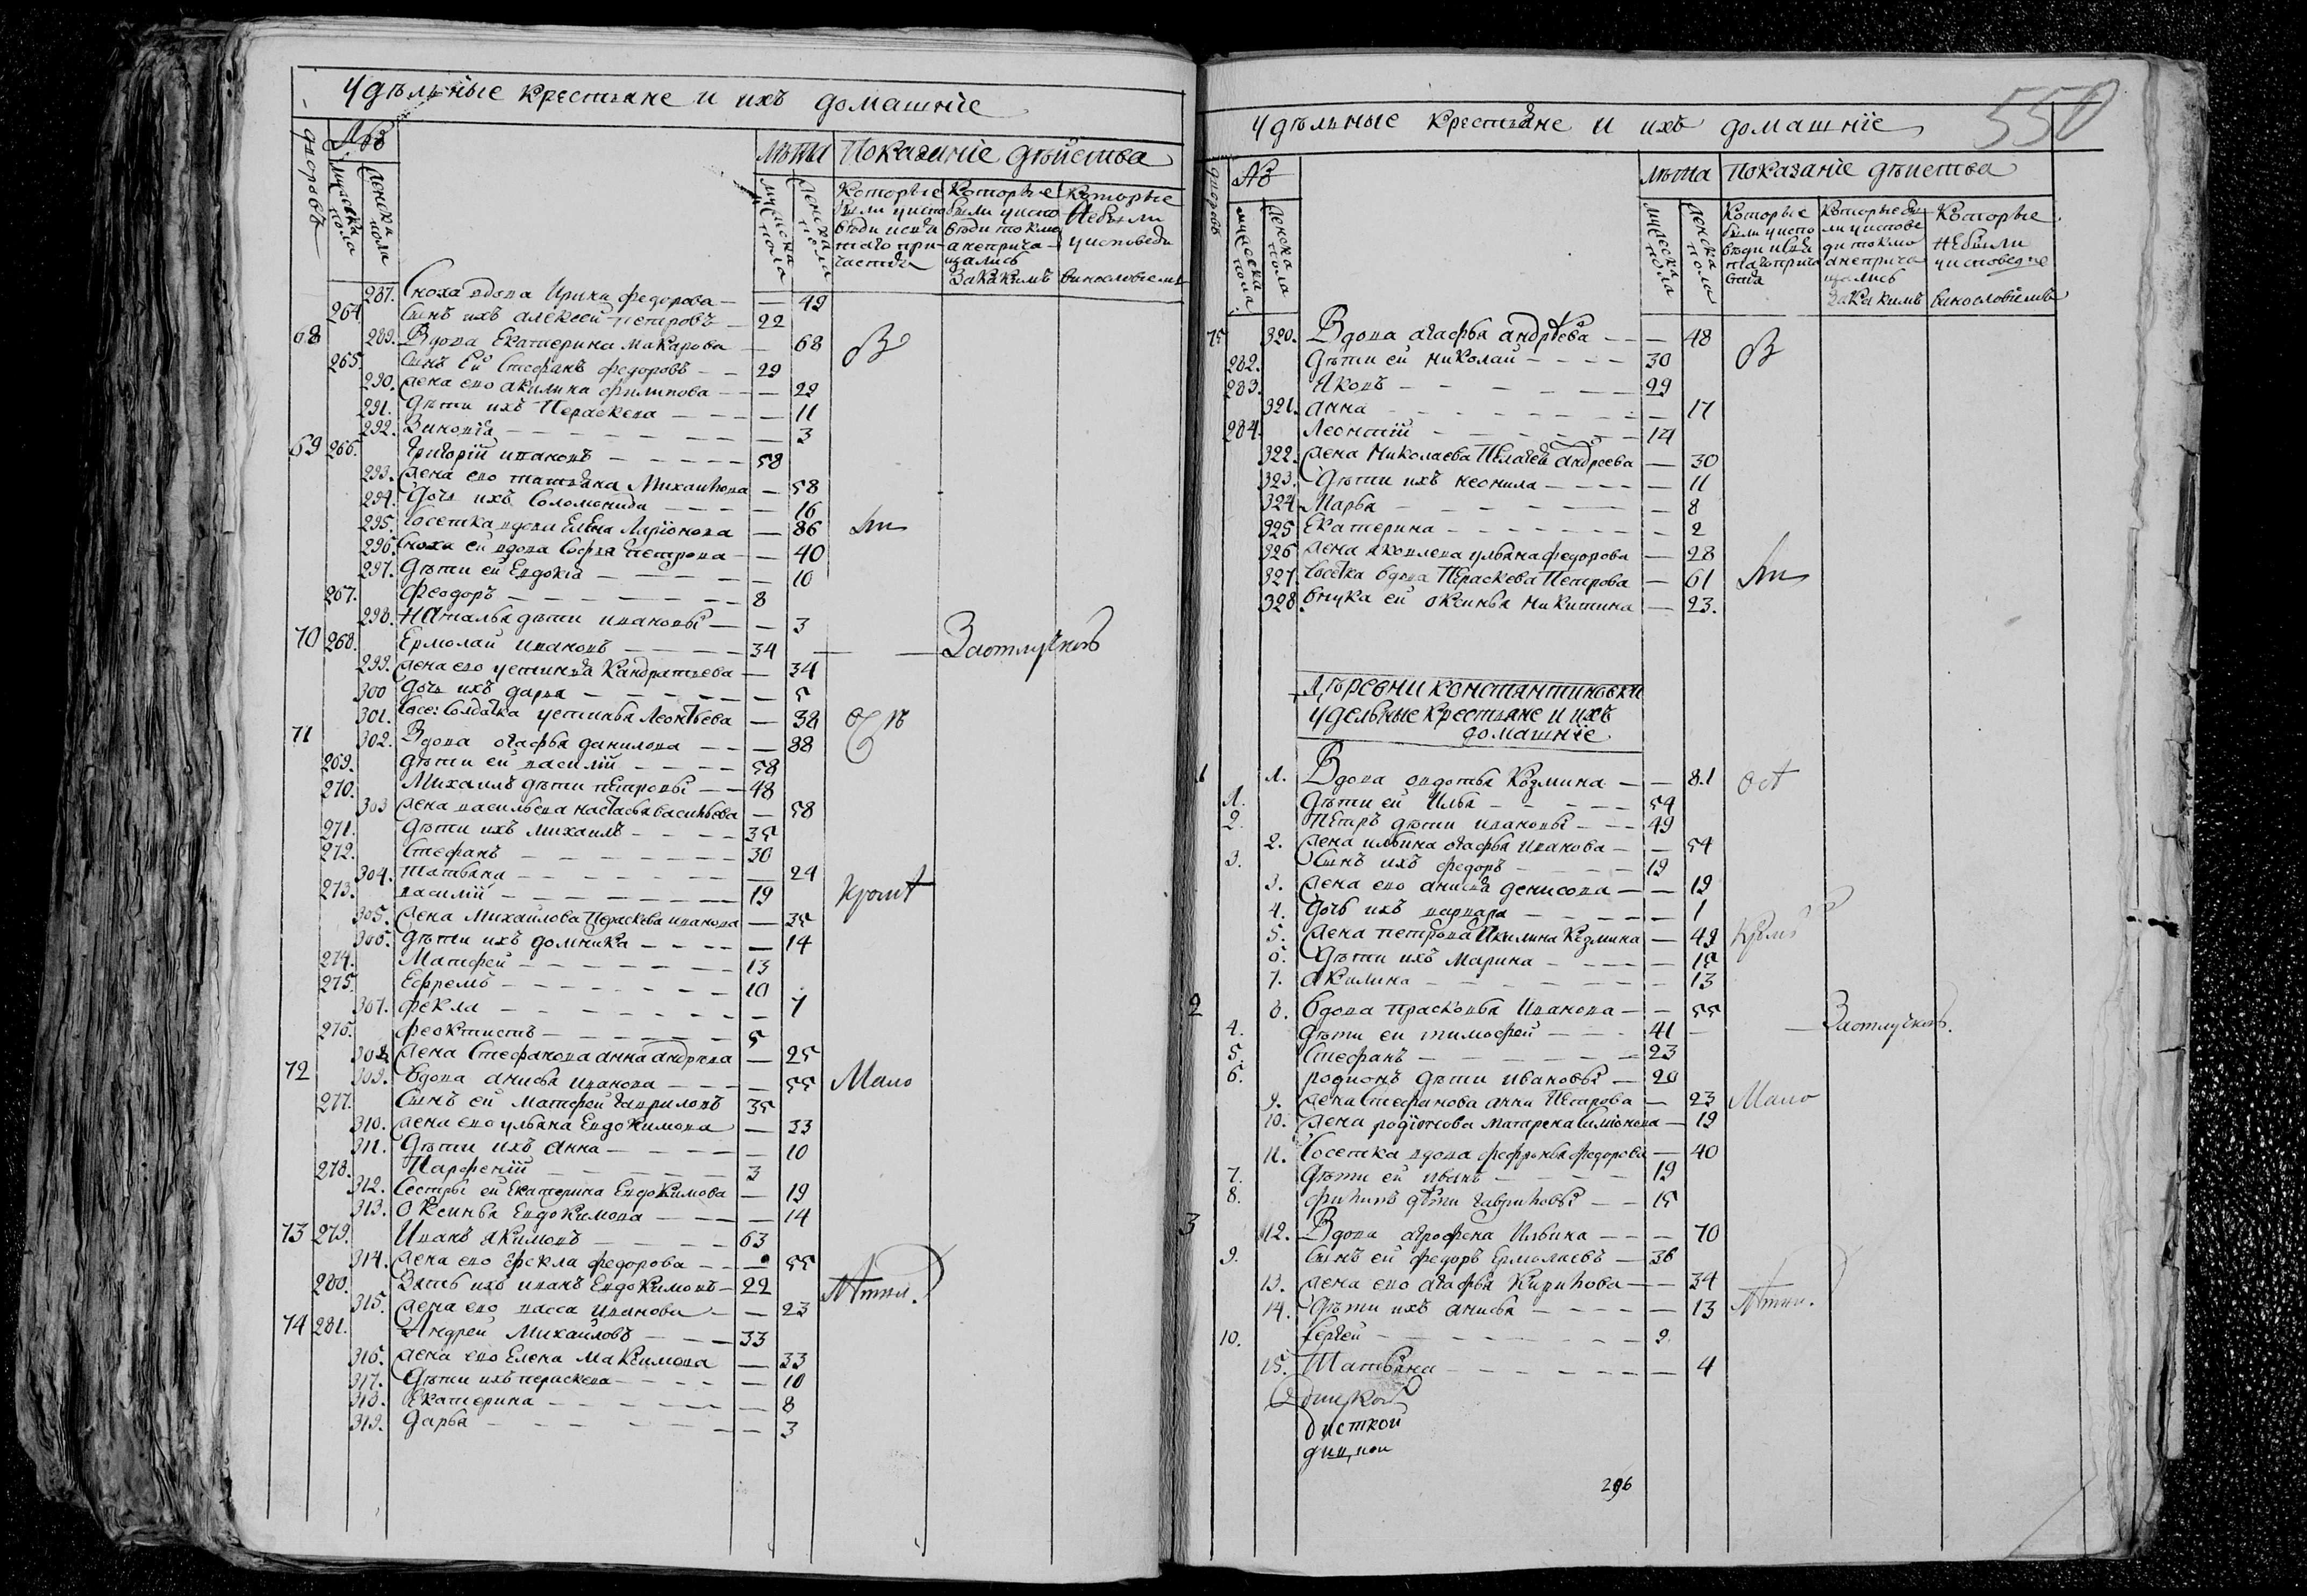 Удѣльные крестьяне и ихъ домашніе
№
Лѣта Показаніе дѣйства
дворовъ
мужеска пола
женска пола
мужеска пола
женска пола
Которые были у исповѣди и св: таго причастія
Которые были у исповѣди токмо а не причащались За какимъ
Которые не были у исповѣди винословіемъ
287. Сноха вдова Ирина федорова — — 49
264. Сынъ ихъ алексей петровъ — 22
68 289. Вдова Екатерина макарова — 68 В
265. Сынъ Ей Стефанъ федоровъ — — 29
290. жена ево акилина филипова — — 29
291. дѣти ихъ Параскева — — — — 11
292. Зиновія — — — — — 3
69 266. Григорій ивановъ — — — — — 58
293. жена ево татьяна Михаилова — 58
294. дочь ихъ Соломонида — — — 16
295. Сосетка вдова Елена Ларіонова — 86
296. сноха ей вдова Софья Петрова — — 40
297. дѣти ей Евдокія — — — — — 10
267. Феодоръ — — — — — — 8
298. Наталья дѣти ивановы — — 3
70 268. Ермолай ивановъ — — — — 34 — — За отлучкою
299. жена ево устинья Кандратьева — 34
300 дочь ихъ дарья — — — — — 5
301. сосе: Солдатка устинья Леонтьева — 38
71 302. Вдова огафья данилова — — — 88
269. дѣти ей василій — — — — 58
270. Михаилъ дѣти петровы — — 48
303 жена васильева настасья васильева — 58
271. дѣти ихъ михаилъ — — — — 35
272. Стефанъ — — — — — — — 30
304. татьяна — — — — — — 24
273. василій — — — — — — — 19
305. жена Михаилова Параскева иванова — 35
306. дѣти ихъ домника — — — — — 14
274. Матфей — — — — — — — 13
275. Ефремъ — — — — — — — 10
307. фекла — — — — — — — 7
276. феоктистъ — — — — — — 5
308. жена Стефанова анна андрѣева — 25
72 309. Вдова анисья иванова — — — — 55 Мало
277. Сынъ ей Матфей Гавриловъ 35
310. жена ево ульяна Евдокимова — 33
311. дѣти ихъ анна — — — — — 10
278. Парфеній — — — — — — 3
312. Сестры ей Екатерина Евдокимова — 19
313. Оксинья Евдокимова — — — — 14
73 279. Иванъ якимовъ — — — — 63
314. жена ево фекла федорова — — — 55
280. Зять ихъ иванъ Евдокимовъ — 22
315. жена ево васса иванова — — 23
74 281. Андрей Михаиловъ — — — 33
316. жена ево Елена максимова — 33
317. дѣти ихъ параскева — — — — — 10
318. Екатерина — — — — — — 8
319. дарья — — — — — — — 3
550
Удѣльные крестьяне и ихъ домашніе
№
Лѣта Показаніе дѣйства
дворовъ
мужеска пола
женска пола
мужеска пола
женска пола
Которые были у исповѣди и свя таго прича стія
Которые бы ли у исповѣ ди токмо а не прича щались За какимъ
Которые не были у исповеди винословіемъ
75 320. Вдова агафья андрѣева — — — 48 В
282. дѣти ей николай — — — — 30
283. Яковъ — — — — — — 29
321. анна — — — — — — — 17
284. Леонтій — — — — — — 14
322. жена Николаева Пелагея андреева — 30
323. дѣти ихъ неонила — — — — — 11
324. Марья — — — — — — — 8
325 Екатерина — — — — — — 2
326 жена яковлева ульяна федорова — 28
327. Сосѣтка вдова Параскева Петрова — 61
328. внука ей оксинья никитина — 23.
Деревни константиновки
удельные крестьяне и ихъ
домашніе
1 1. Вдова авдотья Козмина — — 81
1. дѣти ей Илья — — — — — 54
2. Петръ дѣти ивановы — — — 49
2. жена ильина огафья иванова — — 54
3. Сынъ ихъ федоръ — — — — 19
3. жена ево анисья денисова — — 19
4. дочь ихъ варвара — — — — — 1
5. жена петрова Акилина Козмина — 49
6. дѣти ихъ Марина — — — — — 15
7. акилина — — — — — — 13
2 8. вдова прасковья Иванова — — 55
4. дѣти ей тимофей — — — 41 — — За отлучкою.
5. Стефанъ — — — — — — 23
6. родионъ дѣти ивановы — 20
9. жена Стефанова анна Петрова — 23 Мало
10. жена родіонова матрена Симіонова — 19
11. Сосетка вдова фефронья федорова — 40
7. дѣти ей иванъ — — — — 19
8. филипъ дѣти гавриловы — — 15
3 12. Вдова агрофена Ильина — — — 70
9. Сынъ ей федоръ Ермолаевъ — 36
13. жена ево агафья Кирилова — — 34
14. дѣти ихъ анисья — — — — — 13
10. Сергей — — — — — — — 9
15. Татьяна — — — — — — — 4
296